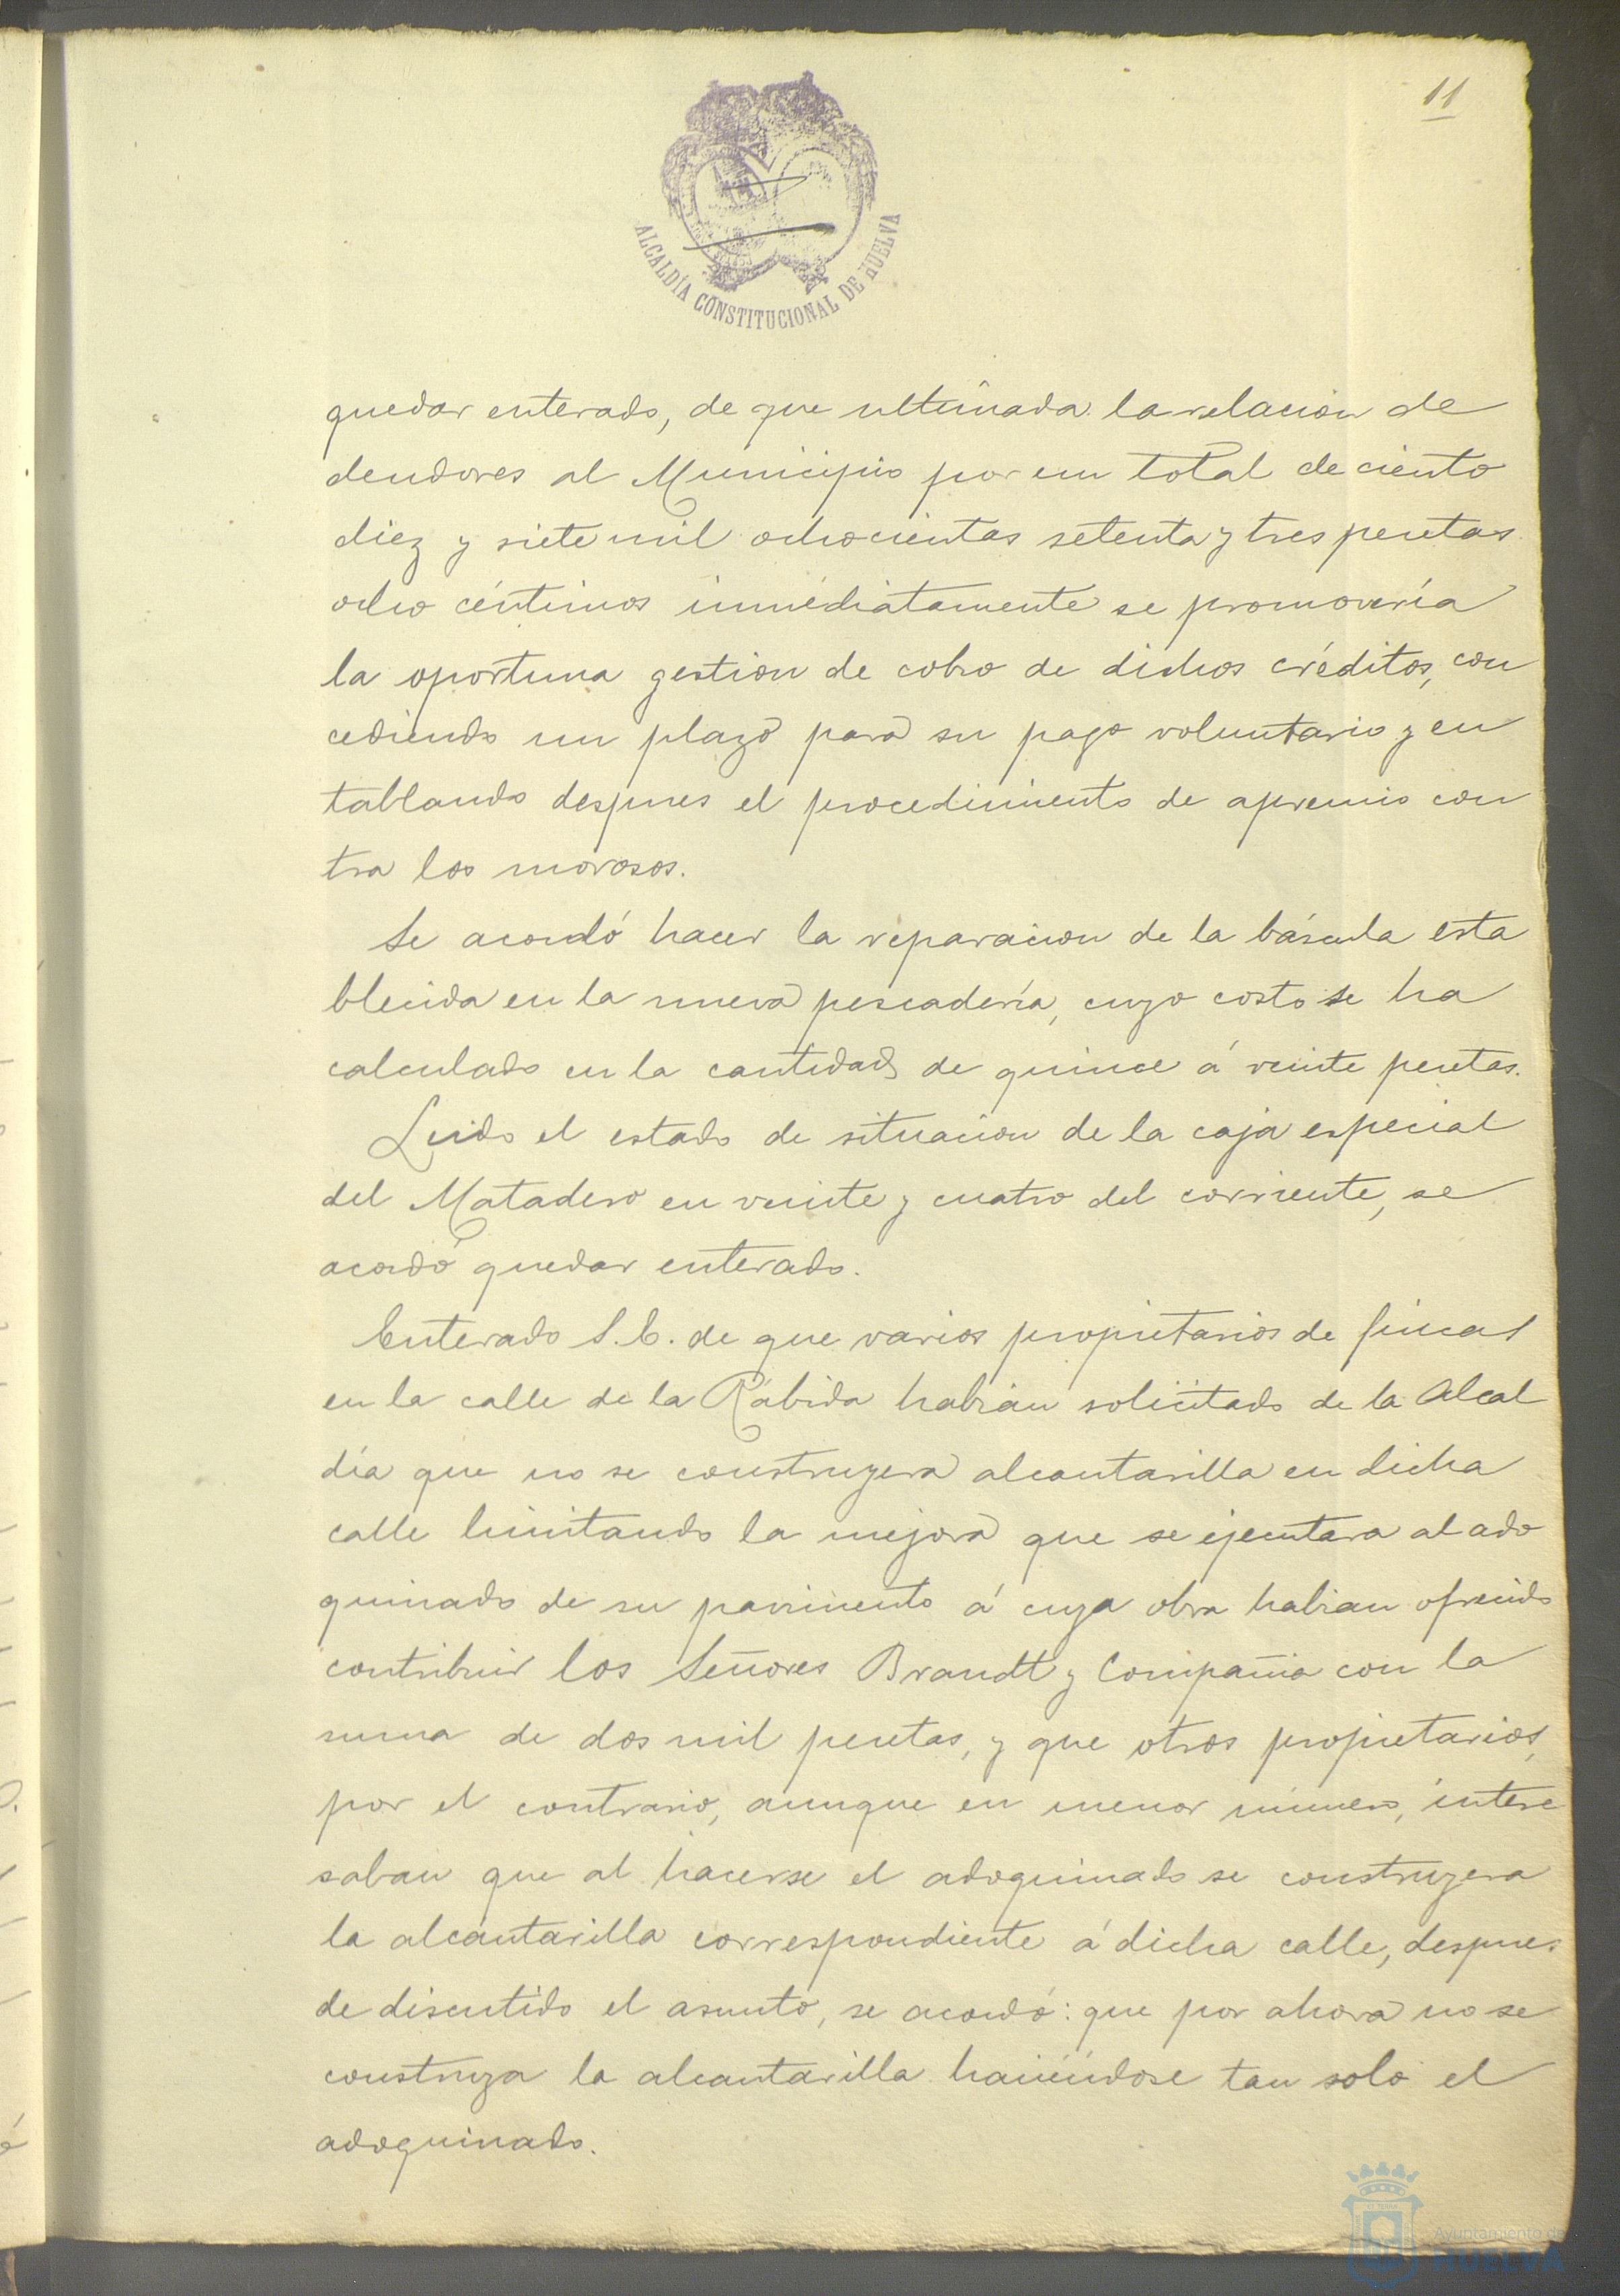 11
ALCALDÍA CONSTITUCIONAL DE HUELVA
quedar enterado, de que ultimada la relacion de
deudores al Municipio por un total de ciento
diez y siete mil ochocientas setenta y tres pesetas
ocho céntimos inmediatamente se promovería
la oportuna gestion de cobro de dichos créditos, con
cediendo un plazo para su pago voluntario y en
tablando despues el procedimiento de apremio con
tra los morosos.
Se acordó hacer la reparacion de la báscula esta
blecida en la nueva pescadería, cuyo costo se ha
calculado en la cantidad de quince á veinte pesetas.
Leido el estado de situacion de la caja especial
del Matadero en veinte y cuatro del corriente, se
acordó quedar enterado.
Enterado S.E. de que varios propietarios de fincas
en la calle de la Rábida habian solicitado de la Alcal
día que no se construyera alcantarilla en dicha
calle limitando la mejora que se ejecutara al ado
quinado de su pavimento á cuya obra habian ofrecido
contribuir los Señores Brandt y Compañia con la
suma de dos mil pesetas, y que otros propietarios,
por el contrario, aunque en menor número, intere
saban que al hacerse el adoquinado se construyera
la alcantarilla correspondiente á dicha calle, despues
de discutido el asunto, se acordó: que por ahora no se
construya la alcantarilla haciéndose tan solo el
adoquinado.
Ayuntamiento de
HUELVA